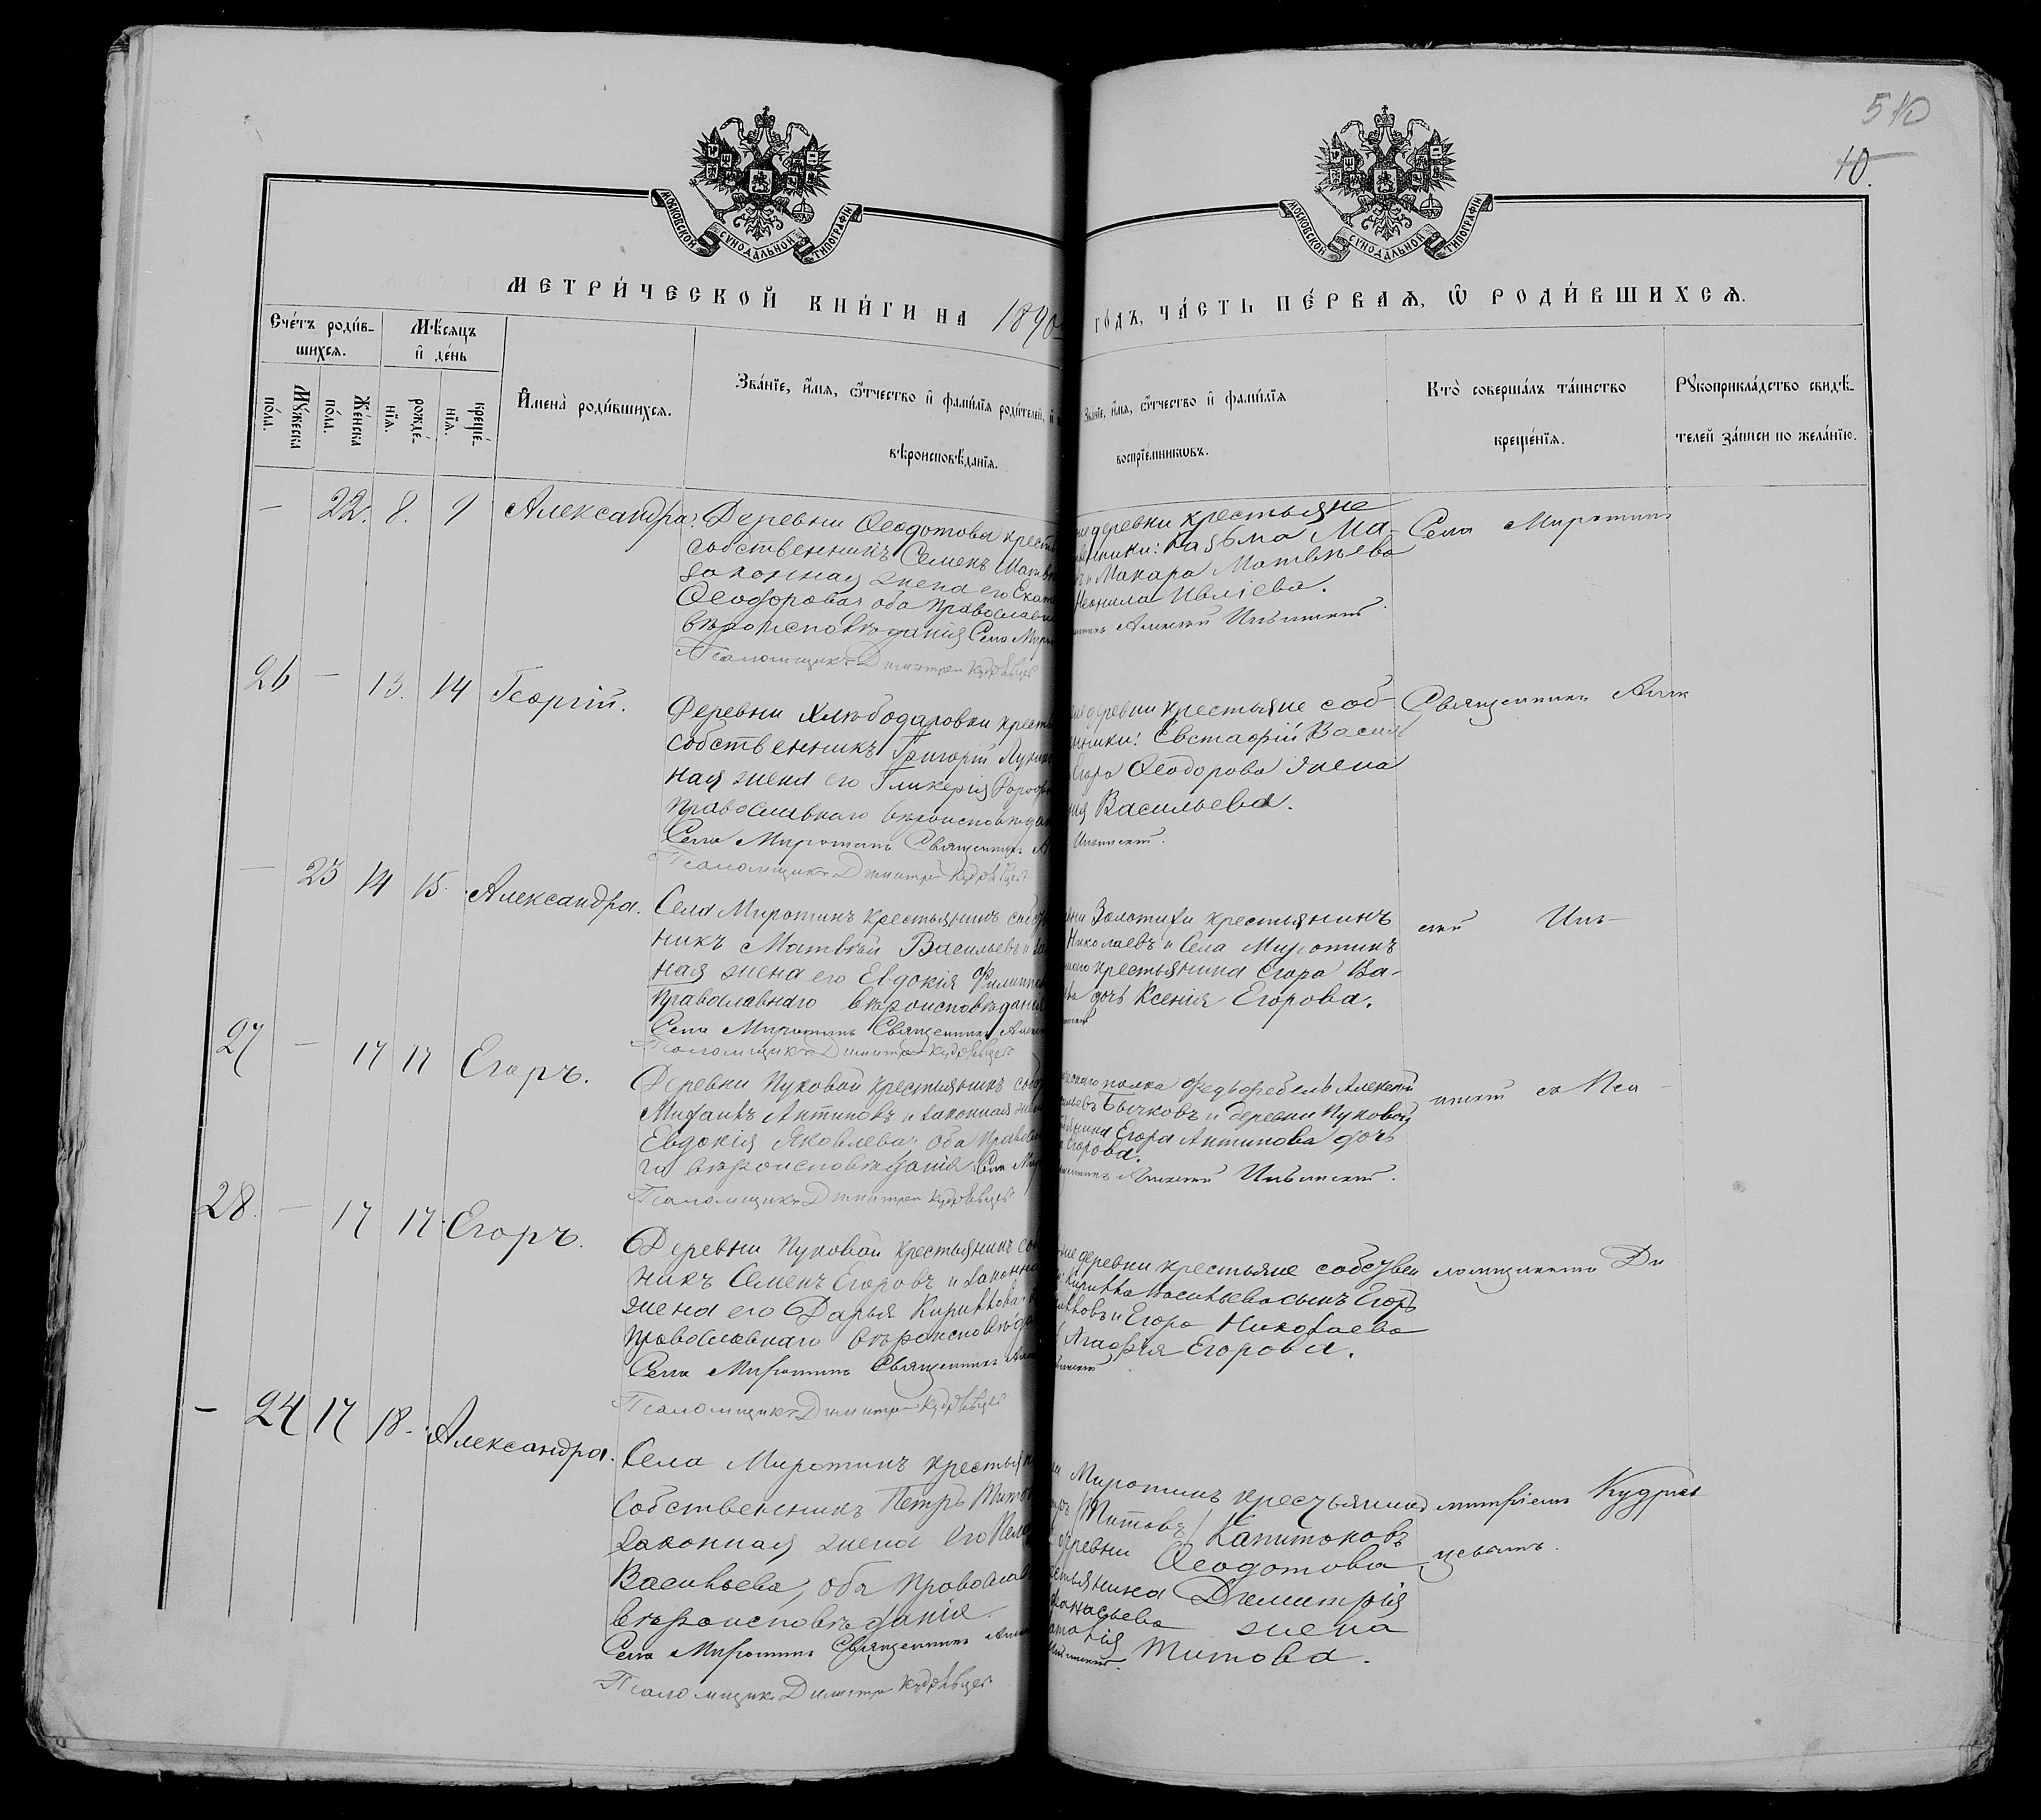 510
10.
МОСКОВСКОЙ СУНОДАЛЬНОЙ ТИПОГРАФІИ
МОСКОВСКОЙ СУНОДАЛЬНОЙ ТИПОГРАФІИ
МЕТРИ́ЧЕСКОЙ КНИ́ГИ НА 1890
ГО́ДЪ, ЧА́СТЬ ПЕ́РВАѦ, Ѡ РОДИ́ВШИХСѦ.
Сче́тъ роди́в-
шихсѧ.
Мѣ́сѧцъ
и де́нь
Мꙋ́жеска
по́ла.
Же́нска
по́ла.
рожде́-
нїѧ.
креще́-
нїѧ.
Имена̀ роди́вшихсѧ.
Зва́нїе, и́мѧ, ѻ́тчество и фами́лїѧ роди́телей, и
вѣроисповѣ́данїѧ.
Зва́нїе, и́мѧ, ѻ́тчество и фами́лїѧ
воспрїе́мниковъ.
Кто̀ соверша́лъ та́инство
креще́нїѧ.
Рꙋкоприкла́дство свидѣ́-
телей за́писи по жела́нїю.
— 22. 8. 9 Александра.
Деревни Ѳеодотова крест
собственникъ Семенъ Матв
законная жена его Екат
Ѳеодорова, оба православн
вѣроисповѣданія Села Мир
Псаломщикъ Димитрій Кудрявцев
деревни крестьяне
ники: Казьма Ма-
и Макара Матвѣева
Неонила Ивліева.
Алексей Ильинскій.
Села Миротинъ
26 — 13. 14 Георгій.
Деревни Хлѣбодаровки крест
собственникъ Григорій Лукин
ная жена его Гликерія Дороф
православнаго вѣроисповѣдан
Села Миротинъ Священникъ А
Псаломщикъ Димитрій Кудрявцев
деревни крестьяне соб-
нники: Евстафій Васил
Егора Ѳеодорова жена
Васильева.
Ильинскій.
Священникъ Алек
— 23 14 15. Александра.
Села Миротинъ крестьянинъ соб
никъ Матвѣй Васильевъ и за
ная жена его Евдокія Филипп
православнаго вѣроисповѣдания
Села Миротинъ Священникъ Алек
Псаломщикъ Димитрій Кудрявцев
Золотихи крестьянинъ
Николаевъ и Села Миротинъ
крестьянина Егора Ва-
дочь Ксенія Егорова.
сѣй Иль-
27 — 17 17 Егоръ.
Деревни Пуковой крестьянинъ соб
Михаилъ Антиповъ и законная жен
Евдокія Яковлева, оба правосл
го вѣроисповѣданія. Села Мир
Псаломщикъ Димитрій Кудрявцев
полка Федьфебель Алексѣй
Бычковъ и деревни Пуковой
Егора Антипова дочь
Егорова.
Алексей Ильинскій.
инскій съ Пса
28. — 17 17. Егоръ.
Деревни Пуковой крестьянинъ со
никъ Семенъ Егоровъ и законна
жена его Дарья Кирилова
православнаго вѣроисповѣда
Села Миротинъ Священникъ Алек
Псаломщикъ Димитрій Кудрявцев
деревни крестьяне собствен
Васильева сынъ Егоръ
и Егора Николаева
Агафія Егорова.
ломщикомъ Ди
— 24 17 18. Александра.
Села Миротинъ крестьян
собственникъ Петръ Тито
законная жена его Пела
Васильева, оба православ
вѣроисповѣданія.
Села Миротинъ Священникъ Алек
Псаломщикъ Димитрій Кудрявцев
Миротинъ крестьянин
/Титовъ/ Капитоновъ
деревни Ѳеодотова
Димитрія
жена
Титова.
митріемъ Кудряв
цевымъ.